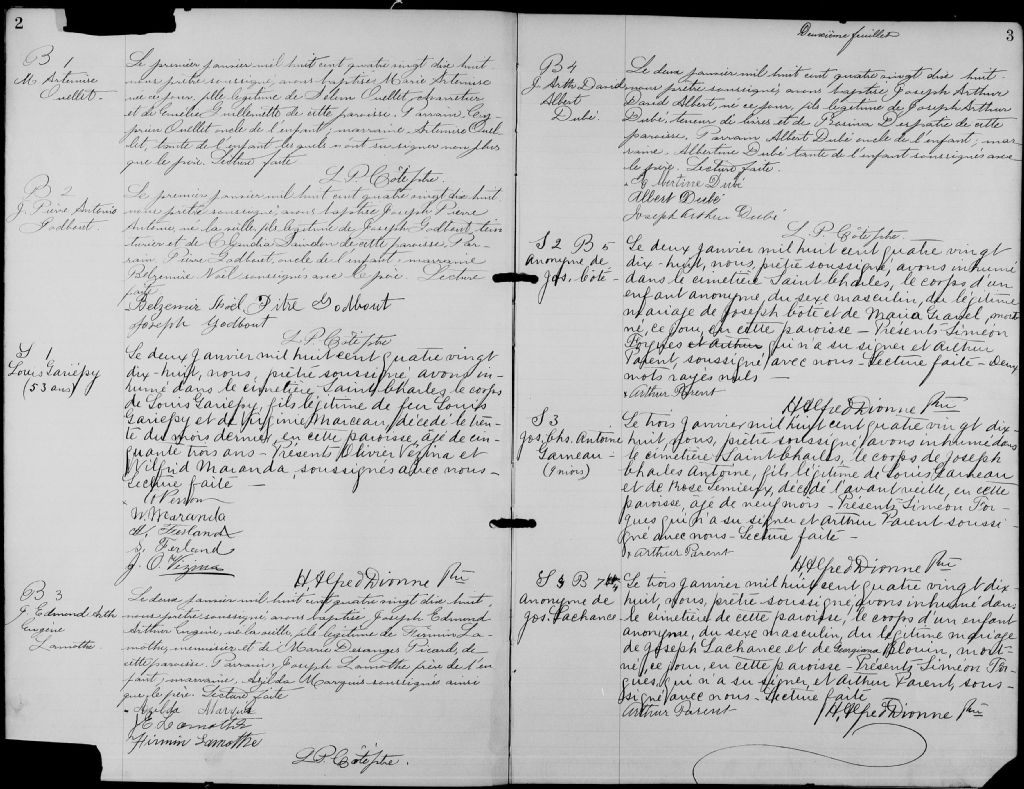 2
B 1
M. Artémise
Ouellet.
Le premier janvier mil huit cent quatre vingt dix huit
nous prêtre soussigné, avons baptisé Marie Artémise
née ce jour, fille légitime de Ouellet, charretier
et de Emélie Guillemette de cette paroisse. Parrain, Cy-
prien Ouellet oncle de l'enfant; marraine, Artémise Ouel-
let, tante de l'enfant lesquels n'ont su signer non plus
que le père. Lecture faite
L. P. Côté ptre.
B 2
J. Pierre Antonio
Godbout.
Le premier janvier mil huit cent quatre vingt dix huit
nous prêtre soussigné, avons baptisé Joseph Pierre
Antonio, né la veille, fils légitime de Joseph Godbout, tein-
turier et de Claudia de cette paroisse. Par-
rain, Pierre Godbout, oncle de l'enfant; marraine
Belzemire Noël soussignés avec le père. Lecture
faite
Belzemir Noël Pitre Godbout
Joseph Godbout
L. P. Côté ptre
S 1
Louis Gariépy
(53 ans)
Le deux janvier mil huit cent quatre vingt
dix-huit, nous, prêtre soussigné, avons in-
humé dans le cimetière Saint Charles, le corps
de Louis Gariépy, fils légitime de feu Louis
Gariépy et de Virginie Marceau, décédé le tren-
te du mois dernier, en cette paroisse, âgé de cin-
quante trois ans - Présents Olivier Vézina et
Wilfrid Maranda, soussignés avec nous -
Lecture faite -
W. Maranda
Ferland
S. Ferland
J. O. Vézina
H Alfred Dionne Ptre
B 3
J. Edmond Arth
Eugène
Lamothe.
Le deux janvier mil huit cent quatre vingt dix huit
nous prêtre soussigné, avons baptisé Joseph Edmond
Arthur Eugène, né la veille, fils légitime de Firmin La-
mothe, menuisier et de Marie Desanges Picard, de
cette paroisse. Parrain, Joseph Lamothe frère de l'en
fant; marraine, Azilda Marquis soussignés ainsi
que le père. Lecture faite
Azilda Marquis
J E Lamothe
Firmin Lamothe
L. P. Côté ptre.
Deuxième feuillet
3
B 4
J. Arth. David
Albert
Dubé.
Le deux janvier mil huit cent quatre vingt dix huit.
nous prêtre soussigné, avons baptisé Joseph Arthur
David Albert, né ce jour, fils légitime de Joseph Arthur
Dubé, teneur de livres et de Rosina Després de cette
paroisse. Parrain Albert Dubé oncle de l'enfant; mar
raine, Albertine Dubé tante de l'enfant soussignés avec
le père. Lecture faite.
Albertine Dubé
Albert Dubé
Joseph Arthur Dubé
L. P. Côté ptre
S 2 B 5
Anonyme de
Jos. Côté -
Le deux janvier mil huit cent quatre vingt
dix-huit, nous, prêtre soussigné, avons inhumé
dans le cimetière Saint Charles, le corps d'un
enfant anonyme, du sexe masculin, du légitime
mariage de Joseph Côté et de Maria Gravel, mort
né, ce jour, en cette paroisse - Présents Siméon
Forgues et Arthur qui n'a su signer et Arthur
Parent, soussigné avec nous - Lecture faite - Deux
mots rayés nuls -
Arthur Parent
H Alfred Dionne Ptre
S 3
Jos. Chs. Antoine
Garneau -
(9 mois)
Le trois janvier mil huit cent quatre vingt dix-
huit, nous, prêtre soussigné avons inhumé dans
le cimetière Saint Charles, le corps de Joseph
Charles Antoine, fils légitime de Louis Garneau
et de Rose Lemieux, décédé l'avant veille, en cette
paroisse, âgé de neuf mois - Présents Siméon For-
gues, qui n'a su signer et Arthur Parent soussi-
gné avec nous - Lecture faite -
Arthur Parent
H Alfred Dionne Ptre
S 4 B 7
Anonyme de
Jos. Lachance
Le trois janvier mil huit cent quatre vingt dix
huit, nous, prêtre soussigné, avons inhumé dans
le cimetière de cette paroisse, le corps d'un enfant
anonyme, du sexe masculin, du légitime mariage
de Joseph Lachance et de Georgiana Blouin, mort-
né, ce jour, en cette paroisse - Présents Siméon For-
gues, qui n'a su signer, et Arthur Parent, sous-
signé avec nous - Lecture faite
Arthur Parent
H. Alfred Dionne Ptre